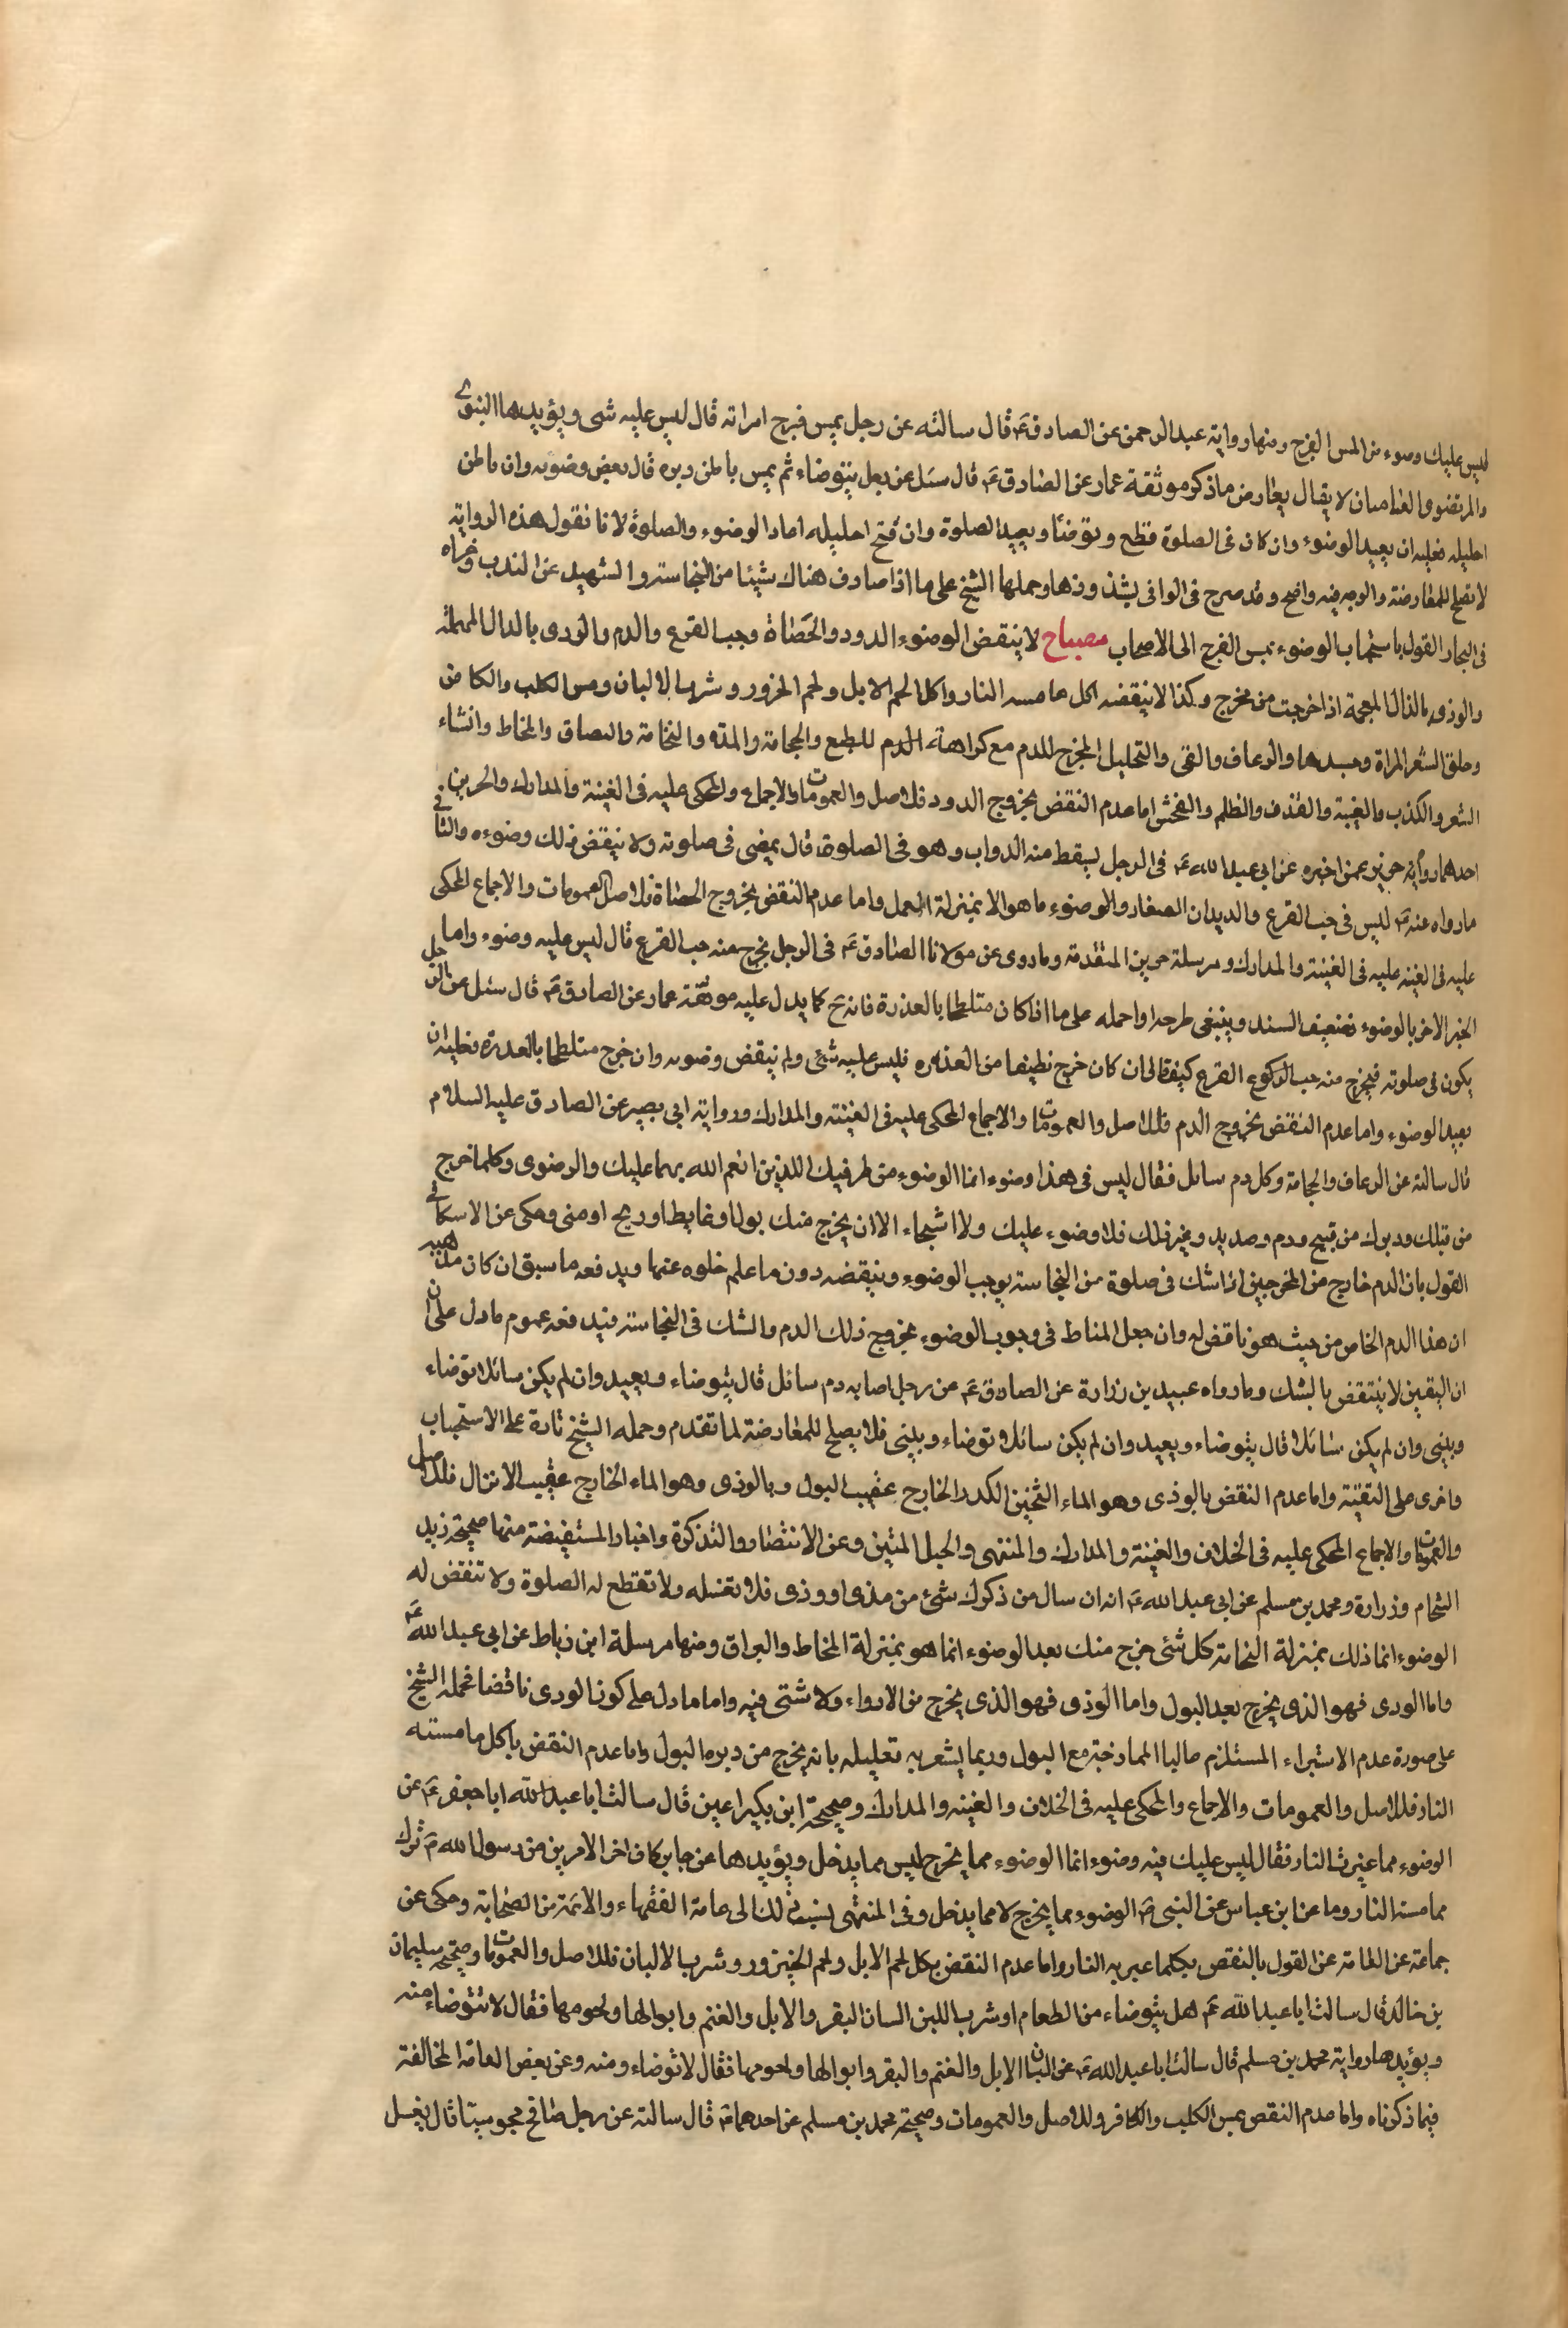 ليس عليك وضوء من المس الفرج ومنها رواية عبد الرحمن عن الصادق ع قال سالته عن رجل يمس فرج امراته قال ليس عليه شى ويؤيدها النبوى
والمرتضو والعاميان لا يقال يعارض ما ذكر موثقة عمار عن الصادق ع قال سئل عن رجل يتوضاء ثم يمس باطن دبره قال نقض وضوئه وان باطن
احليله فعليه ان يعيد الوضوء وان كان فى الصلوة قطع وتوضئا ويعيد الصلوة وان فتح احليله اعاد الوضوء والصلوة لانا نقول هذه الرواية
لا تصلح للمعارضة والوجه فيه واضح وقد صرح فى الوافى بشذوذها وحملها الشيخ على ما اذا صادف هناك شيئا من النجاسة والشهيد عن الندب وعزاه
فى البحار القول باستحباب الوضوء بمس الفرج الى الاصحاب مصباح لا ينقض الوضوء الدود والحصاة وحب القرع والدم والودى بالدال المهملة
والوذى بالذال المعجمة اذا خرجت من مخرج وكذا لا ينقضه اكل ما مسه النار واكل لحم الابل ولحم الجزور وشرب الالبان ومس الكلب والكافر
وحلق الشعر المراة وجسدها والرعاف والقى والتحليل المخرج للدم مع كراهة الدم للطبع والحجامة والمذى والنخامة والبصاق والمخاط وانشاء
الشعر والكذب والغيبة والقذف والظلم والفحش اما عدم النقض بخروج الدود فللاصل والعمومات والاجماع والمحكى عليه فى الغنية والمدارك والحريز
احدهما رواية حريز عمن اخبره عن ابى عبد الله ع فى الرجل يسقط منه الدواب وهو فى الصلوة قال يمضى فى صلوته ولا ينقض ذلك وضوءه والثانى
ما رواه عنه ع ليس فى حب القرع والديدان الصغار والوضوء ما هو الا بمنزلة القمل واما عدم النقض بخروج الحصاة فللاصل العمومات والاجماع المحكى
عليه فى الغنية عليه فى الغنية والمدارك ومرسلة حريز المتقدمة وما روى عن مولانا الصادق ع فى الرجل يخرج منه حب القرع قال ليس عليه وضوء واما
الخبر الاخر بالوضوء فضعيف السند وينبغى طرحه او احمله على ما اذا كان متلطخا بالعذرة فانه ح كما يدل عليه موثقة عمار عن الصادق ع قال سئل عن الرجل
يكون فى صلوته فيخرج منه حب الركوع القرع كيف قال ان كان خرج نظيفا من العذره فليس عليه شئى ولم ينقض وضوئه وان خرج متلطخا بالعذرة فعليه ان
يعيد الوضوء واما عدم النقض بخروج الدم فللاصل والعمومات والاجماع المحكى عليه فى الغنية والمدارك ورواية ابى بصير عن الصادق عليه السلام
قال سالته عن الرعاف والحجامة وكل دم سائل فقال ليس فى هذا وضوء انما الوضوء من طرفيك اللذين انعم الله بهما عليك والرضوى وكلما خرج
من قبلك ودبرك من قيح ودم وصديد وغير ذلك فلا وضوء عليك ولا اشتنجاء الا ان يخرج منك بول او غايط او ريح او منى وحكى عن الاسكافى
القول بان الدم خارج من المخرجين اذا شك فى صلوة من النجاسة يوجب الوضوء وينقضه دون ما علم خلوه عنها ويدفعه ما سبق ان كان مذهبه
ان هذا الدم الخاص من حيث هو ناقض له وان جعل المناط فى وجوب الوضوء بخروج ذلك الدم والشك فى النجاسة فيدفعه عموم ما دل على ان
ان اليقين لا ينتقض بالشك وما رواه عبيد بن زرارة عن الصادق ع عن رجل اصابه دم سائل قال يتوضاء ويعيد وان لم يكن سائلا توضاء
ويبنى وان لم يكن سائلا قال يتوضاء ويعيد وان لم يكن سائلا توضاء ويبنى فلا يصلح للمعارضة لما تقدم وحمله الشيخ تارة على الاستحباب
واخرى على التقية واما عدم النقض بالوذى وهو الماء الثخين الكدر الخارج عقيب البول وبالوذى وهو الماء الخارج عقيب الانزال فللاصل
والعمومات والاجماع المحكى عليه فى الخلاف والغنية والمدارك والمنتهى والحبل المتين وعن الانتصار والتذكرة واخبار المستفيضة منها صحيحة زيد
الشحام وزرارة ومحمد بن مسلم عن ابى عبد الله ع انه ان سال من ذكرك شئ من مذى او وذى فلا تغسله ولا تقطع له الصلوة ولا تنقض له
الوضوء انما ذلك بمنزلة النخامة كل شئى خرج منك بعد الوضوء انما هو بمنزلة المخاط والبراق ومنها مرسلة ابن رباط عن ابى عبد الله ع
واما الودى فهو الذى يخرج بعد البول واما الوذى فهو الذى يخرج من الادواء ولا شئى فيه واما ما دل على كون الودى ناقضا فحمله الشيخ
على صورة عدم الاستبراء المستلزم غالبا الممازجة مع البول وربما يشعر به تعليله بانه يخرج من دبره البول واما عدم النقض باكل ما مسته
النار فللاصل والعمومات والاجماع والمحكى عليه فى الخلاف والغنيه والمدارك وصحيحة ابن بكير اعين قال سالت ابا عبد الله ابا جعفر ع عن
الوضوء مما غيرت النار فقال ليس عليك فيه وضوء انما الوضوء مما يخرج ليس مما يدخل ويؤيدها عن جابر كان اخر الامرين من رسول الله ص ترك
مما مست النار وما عن ابن عباس عن النبى ص الوضوء مما يخرج لا مما يدخل وفى المنتهى نسب ذلك الى عامة الفقهاء والائمة من الصحابة وحكى عن
جماعة عن العامة عن القول بالنقض بكلما غير به النار واما عدم النقض بكل لحم الابل ولحم الخنزور وشرب الالبان فللاصل والعمومات وصحيحة سليمان
بن خالد قال سالت ابا عبد الله ع هل يتوضاء من الطعام او شرب اللبن السان البقر والابل والغنم وابوالها ولحومها فقال لا تتوضاء منه
ويؤيدها رواية محمد بن مسلم قال سالت ابا عبد الله ع عن البان الابل والغنم والبقر وابوالها ولحومها فقال لا توضاء ومنه وعن بعض العامة المخالفة
فيما ذكرناه واما عدم النقض بمس الكليب والكافر وللاصل والعمومات وصحيحة محمد بن مسلم عن احدهما ع قال سالته عن رجل صافح مجوسيتا قال يغسل